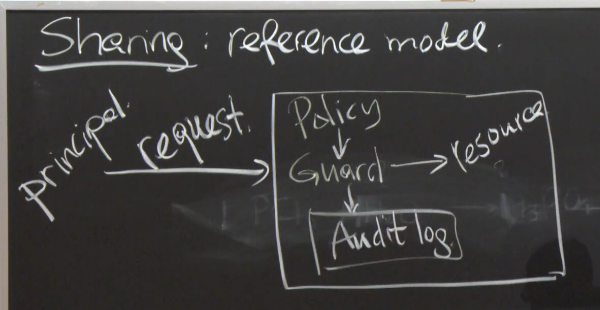 Sharing: reference model.
principal.
request.
Policy
Guard
resource
Audit log.